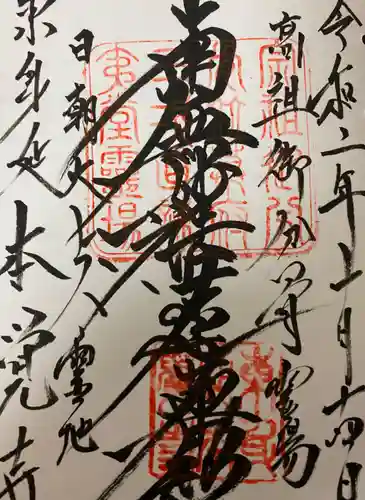 令和二年十一月十四日
高祖御分骨霊場
南無妙法蓮華経
日朝大上人霊地
東身延 本覚寺
夷堂霊場